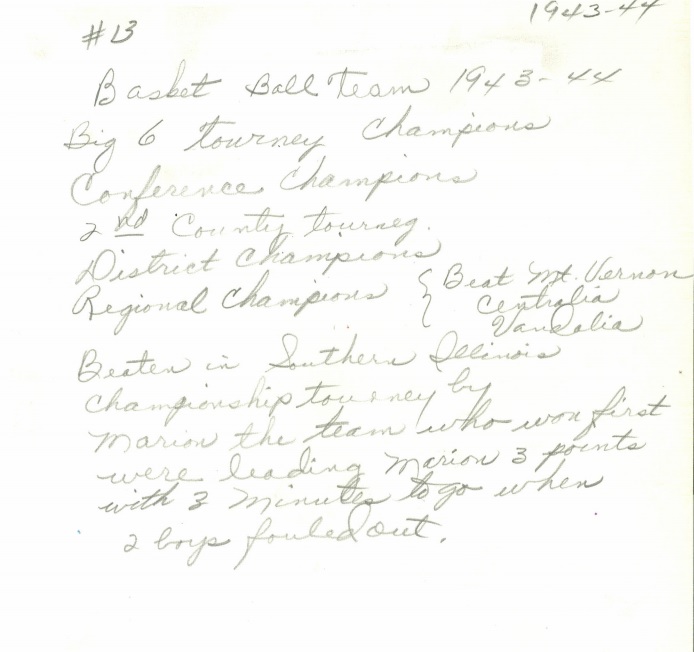 1943-44
#13
Basket Ball Team 1943-44
Big 6 tourney Champions
Conference Champions
2nd County tourney.
District Champions
Regional Champions { Beat Mt. Vernon
Centralia
Vandalia
Beaten in Southern Illinois
Championship tourney by
Marion the team who won first
were leading Marion 3 points
with 3 Minutes to go when
2 boys fouled out.